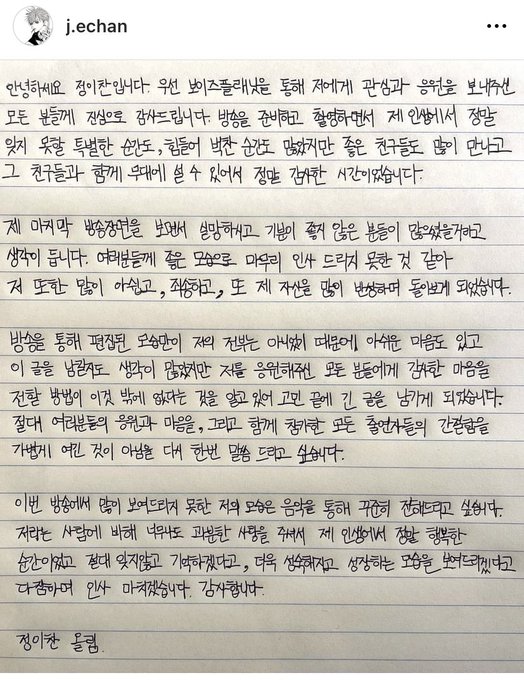 j.echan
안녕하세요 정이찬입니다. 우선 보이즈플래닛을 통해 저에게 관심과 응원을 보내주신
모든 분들께 진심으로 감사드립니다. 방송을 준비하고 촬영하면서 제 인생에서 정말
잊지 못할 특별한 순간도, 힘들어 벅찬 순간도 많았지만 좋은 친구들도 많이 만나고
그 친구들과 함께 무대에 설 수 있어서 정말 감사한 시간이었습니다.
제 마지막 방송장면을 보면서 실망하시고 기분이 좋지 않은 분들이 많으셨을거라고
생각이 듭니다. 여러분들께 좋은 모습으로 마무리 인사 드리지 못한 것 같아
저 또한 많이 아쉽고, 죄송하고, 또 제 자신을 많이 반성하며 돌아보게 되었습니다.
방송을 통해 편집된 모습만이 저의 전부는 아니었기 때문에 아쉬운 마음도 있고
이 글을 남길지도 생각이 많았지만 저를 응원해주신 모든 분들에게 감사한 마음을
전할 방법이 이것 밖에 없다는 것을 알고 있어 고민 끝에 긴 글을 남기게 되었습니다.
절대 여러분들의 응원과 마음을, 그리고 함께 참가한 모든 출연자들의 간절함을
가볍게 여긴 것이 아님을 다시 한번 말씀 드리고 싶습니다.
이번 방송에서 많이 보여드리지 못한 저의 모습은 음악을 통해 꾸준히 전해드리고 싶습니다.
저라는 사람에 비해 너무나도 과분한 사랑을 주셔서 제 인생에서 정말 행복한
순간이었고 절대 잊지않고 기억하겠다고, 더욱 성숙해지고 성장하는 모습을 보여드리겠다고
다짐하며 인사 마치겠습니다. 감사합니다.
정이찬 올림.